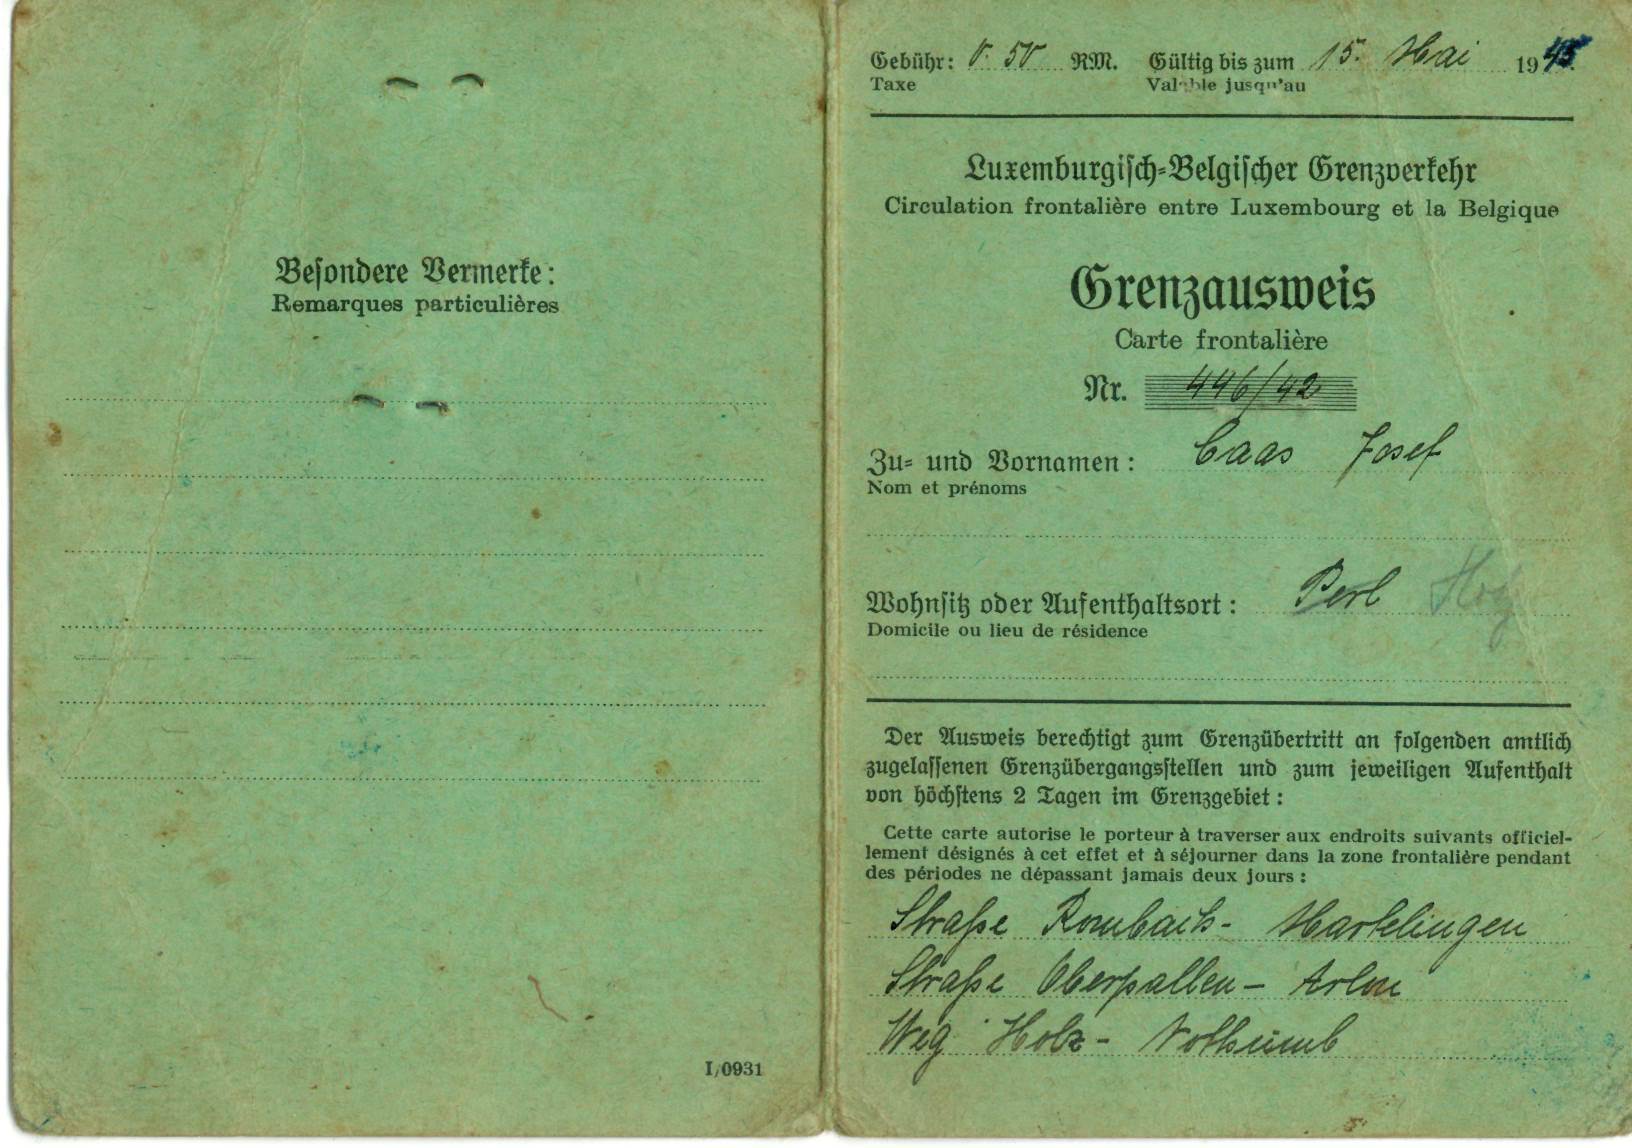 Besondere Vermerke:
Remarques particulières
I/0931
Gebühr: 0.50 RM. Gültig bis zum 15. Mai 1945.
Taxe Valable jusqu'au
Luxemburgisch-Belgischer Grenzverkehr
Circulation frontalière entre Luxembourg et la Belgique
Grenzausweis
Carte frontalière
Nr. 446/42
Zu- und Vornamen: Caas Josef
Nom et prénoms
Wohnsitz oder Aufenthaltsort: Perl
Domicile ou lieu de résidence
Der Ausweis berechtigt zum Grenzübertritt an folgenden amtlich
zugelassenen Grenzübergangsstellen und zum jeweiligen Aufenthalt
von höchstens 2 Tagen im Grenzgebiet:
Cette carte autorise le porteur à traverser aux endroits suivants officiel-
lement désignés à cet effet et à séjourner dans la zone frontalière pendant
des périodes ne dépassant jamais deux jours:
Straße Rombach- Martelingen
Straße Oberpallen- Arlon
Weg Holz-